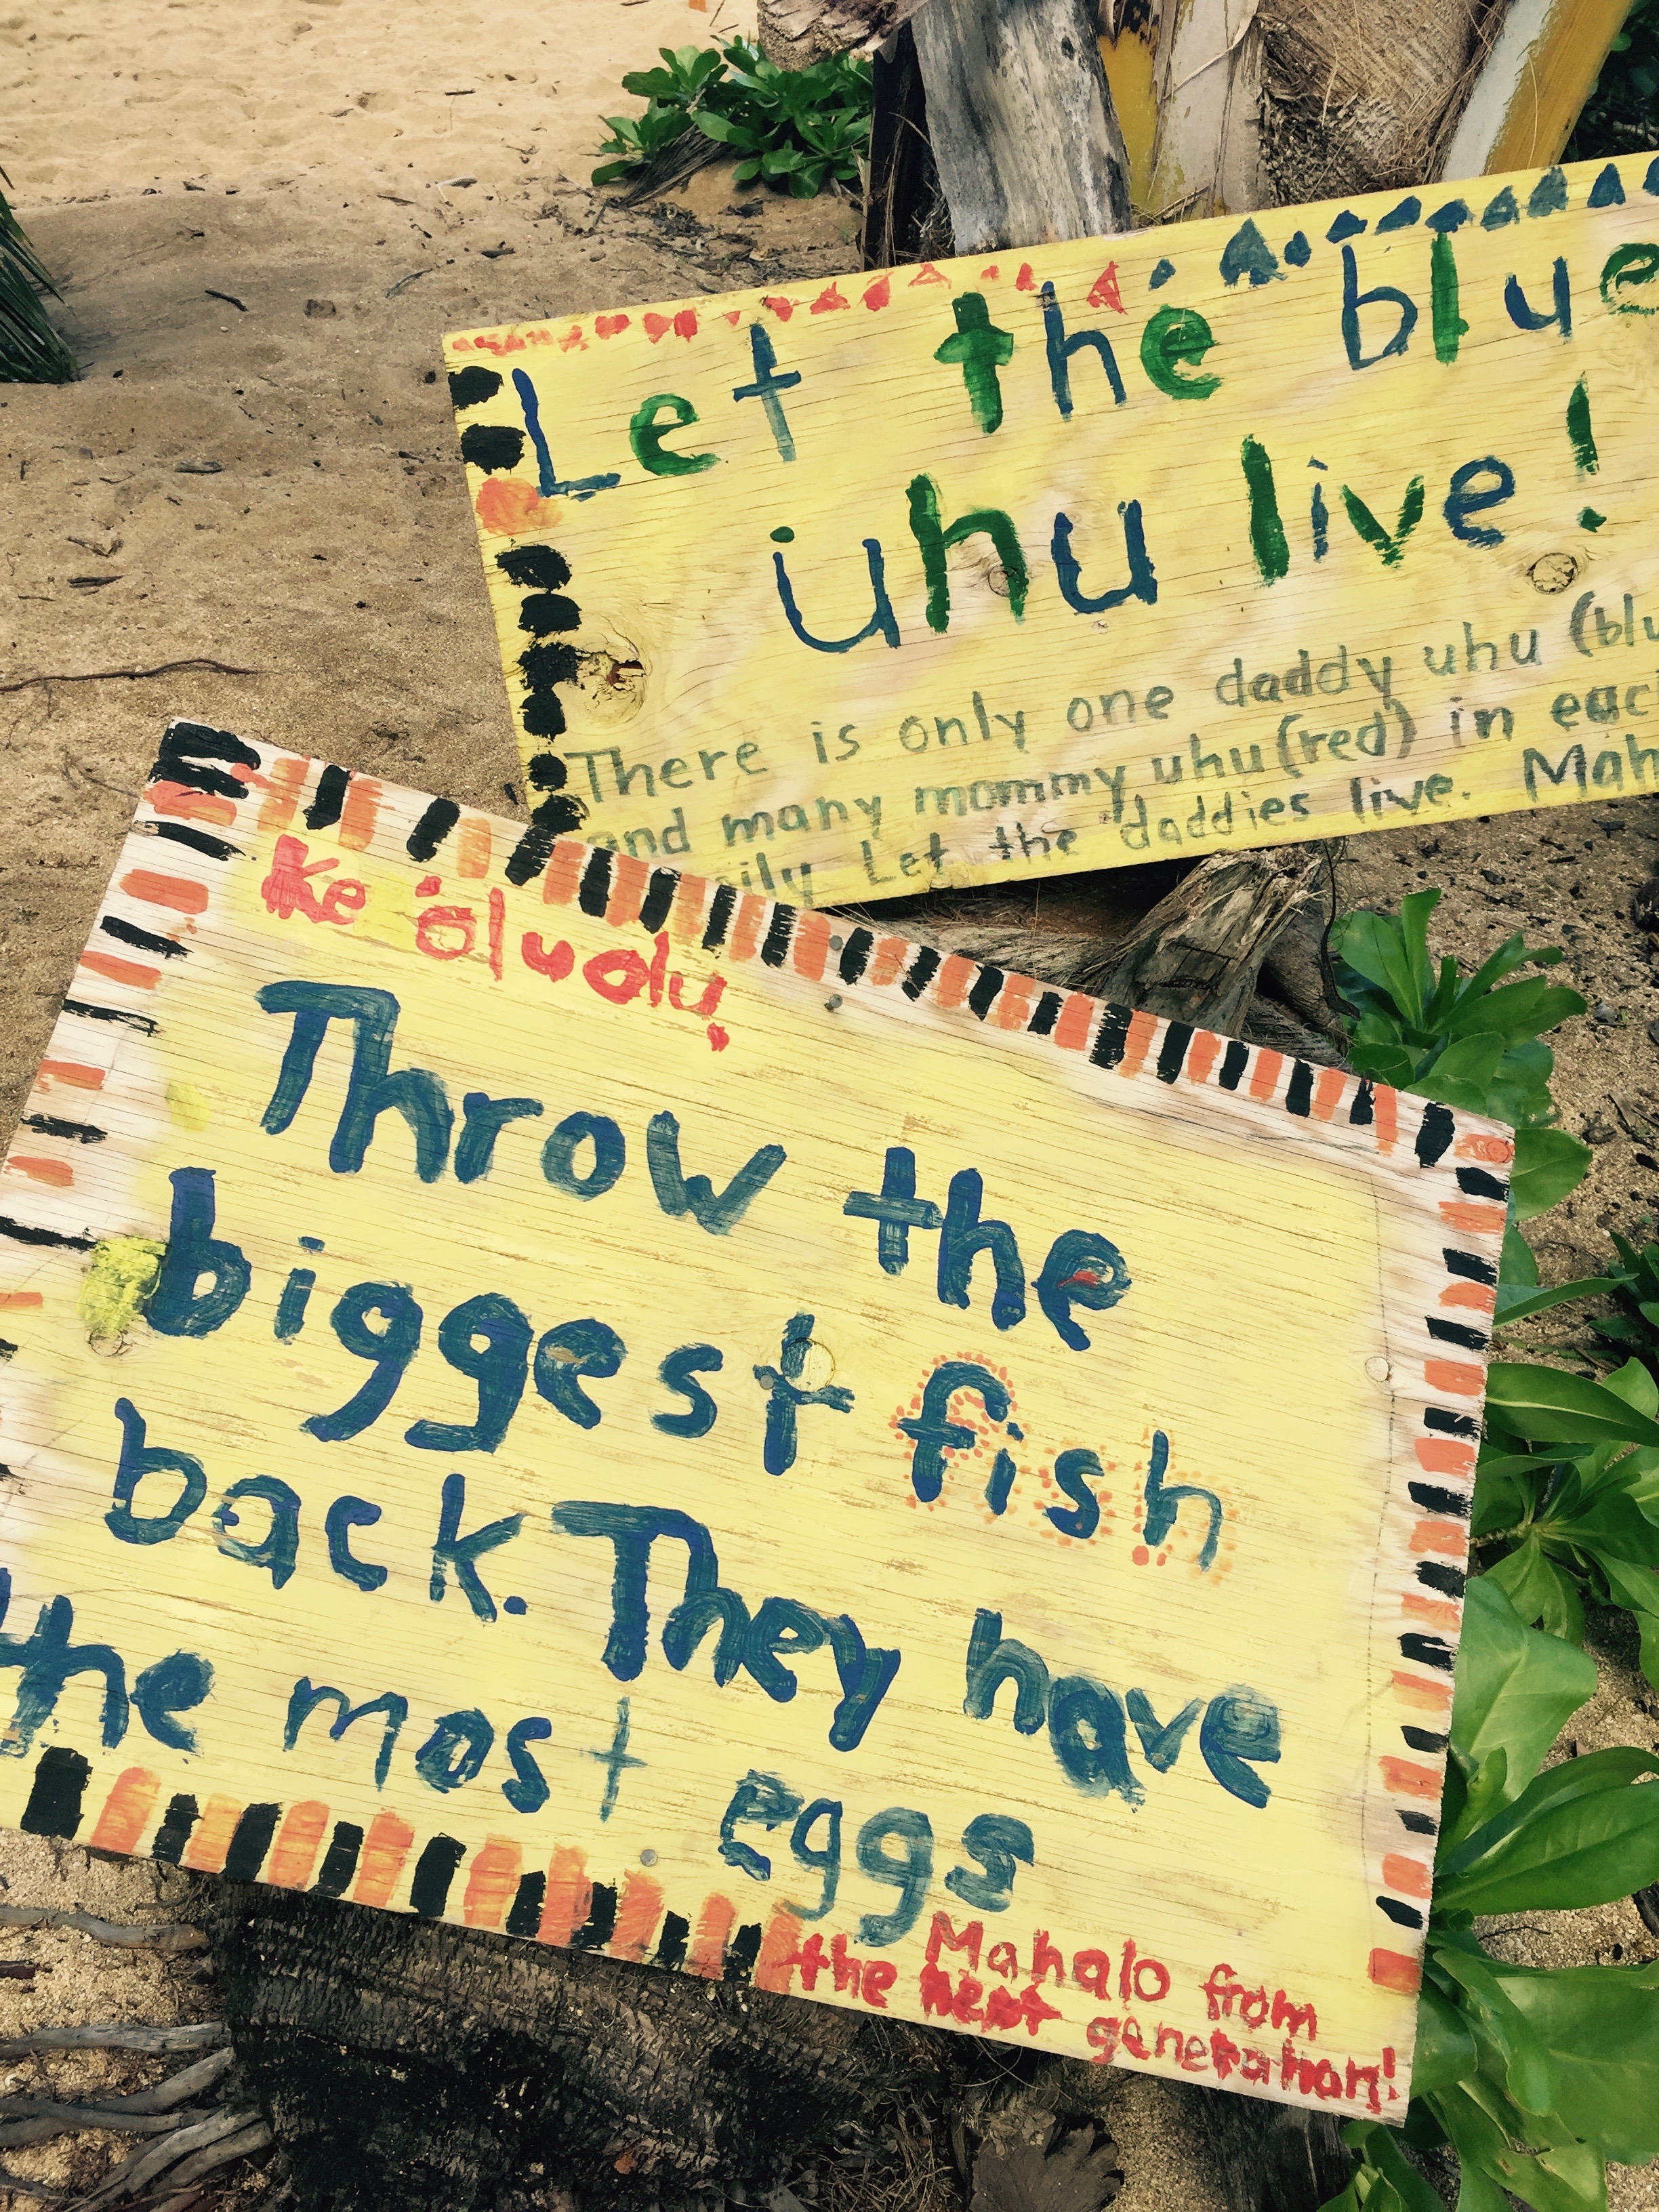 Let the blue
uhu live!
There is only one daddy uhu (blu
and many mommy uhu (red) in eac
ily Let the daddies live. Mah
Ke ōluolu,
Throw the
biggest fish
back. They have
the most eggs
Mahalo from
the next generation!